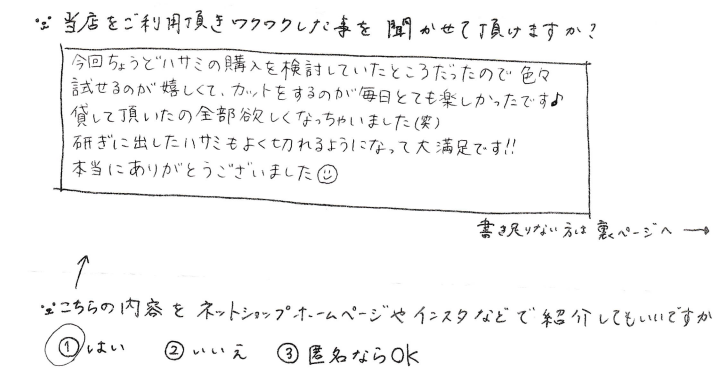 ※ 当店をご利用頂きワクワクした事を聞かせて頂けますか?
今回ちょうどハサミの購入を検討していたところだったので色々
試せるのが嬉しくて、カットをするのが毎日とても楽しかったです♪
貸して頂いたの全部欲しくなっちゃいました(笑)
研ぎに出したハサミもよく切れるようになって大満足です!!
本当にありがとうございました☺
書き足りない方は裏ページへ →
※こちらの内容をネットショップホームページやインスタなどで紹介してもいいですか
①はい ②いいえ ③匿名ならOK